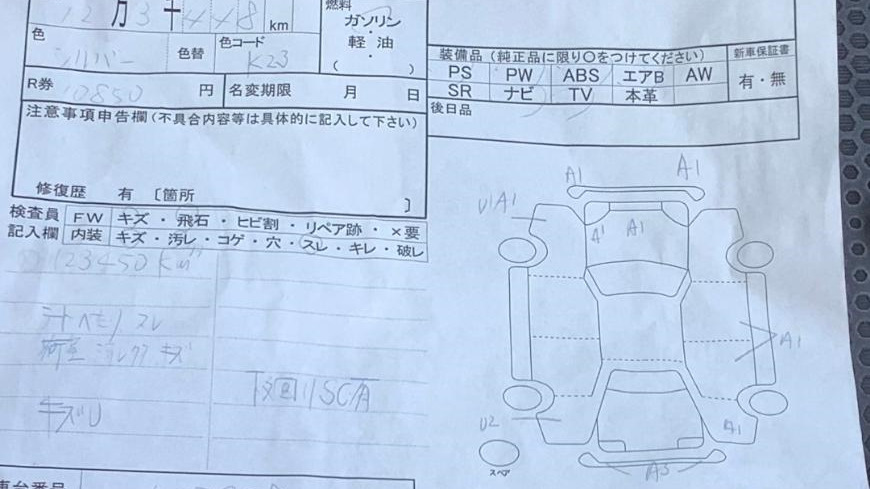 燃料
12 万 3 十 448 km
ガソリン
軽油
( )
色 シルバー 色替 色コード K23
R券 10850 円 名変期限 月 日
注意事項申告欄(不具合内容等は具体的に記入して下さい)
修復歴 有 〔箇所 〕
装備品(純正品に限り○をつけてください) 新車保証書
PS PW ABS エアB AW 有・無
SR ナビ TV 本革
後日品
検査員 FW キズ・飛石・ヒビ割・リペア跡・×要
記入欄 内装 キズ・汚レ・コゲ・穴・スレ・キレ・破レ
123450 Km
スレ
キズ
キズU
A1 A1
U1A1
A1 A1
A1
U2 A1
A3
スペア
車台番号